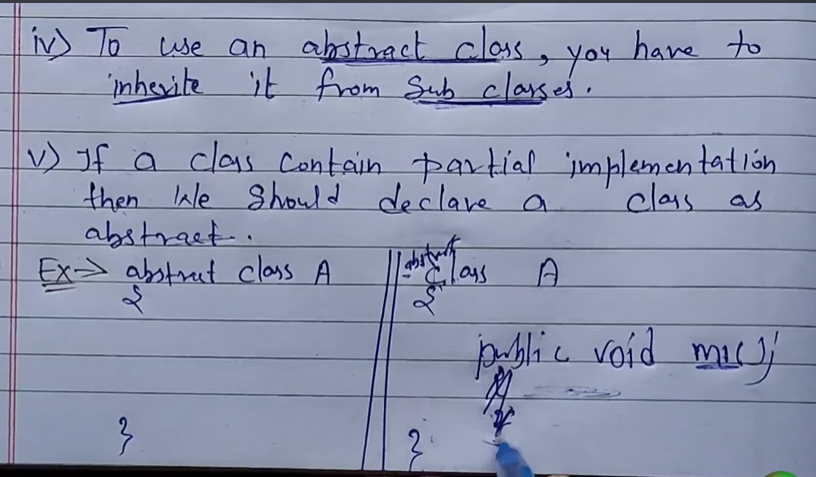 iv) To use an abstract class, you have to
inherite it from Sub classes.
v) If a class contain partial implementation
then We Should declare a class as
abstract.
Ex→ abstract class A
{
}
abstract class A
{
public void m1();
}